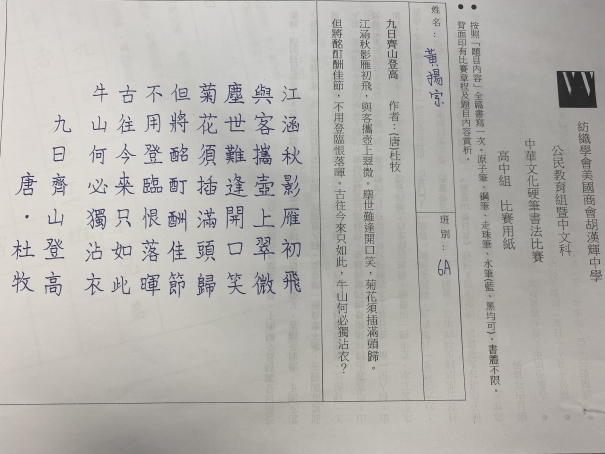 紡織學會美國商會胡漢輝中學
公民教育組暨中文科
中華文化硬筆書法比賽
高中組　比賽用紙
● 按照「題目內容」全篇書寫一次。原子筆、鋼筆、走珠筆、水筆(藍、黑均可)，書體不限。
● 背面印有比賽章程及題目內容賞析。
姓名：黃揚宗　班別：6A
九日齊山登高　作者：(唐)杜牧
江涵秋影雁初飛，與客攜壺上翠微。塵世難逢開口笑，菊花須插滿頭歸。
但將酩酊酬佳節，不用登臨恨落暉。古往今來只如此，牛山何必獨沾衣？
江涵秋影雁初飛
與客攜壺上翠微
塵世難逢開口笑
菊花須插滿頭歸
但將酩酊酬佳節
不用登臨恨落暉
古往今來只如此
牛山何必獨沾衣
九日齊山登高
唐·杜牧